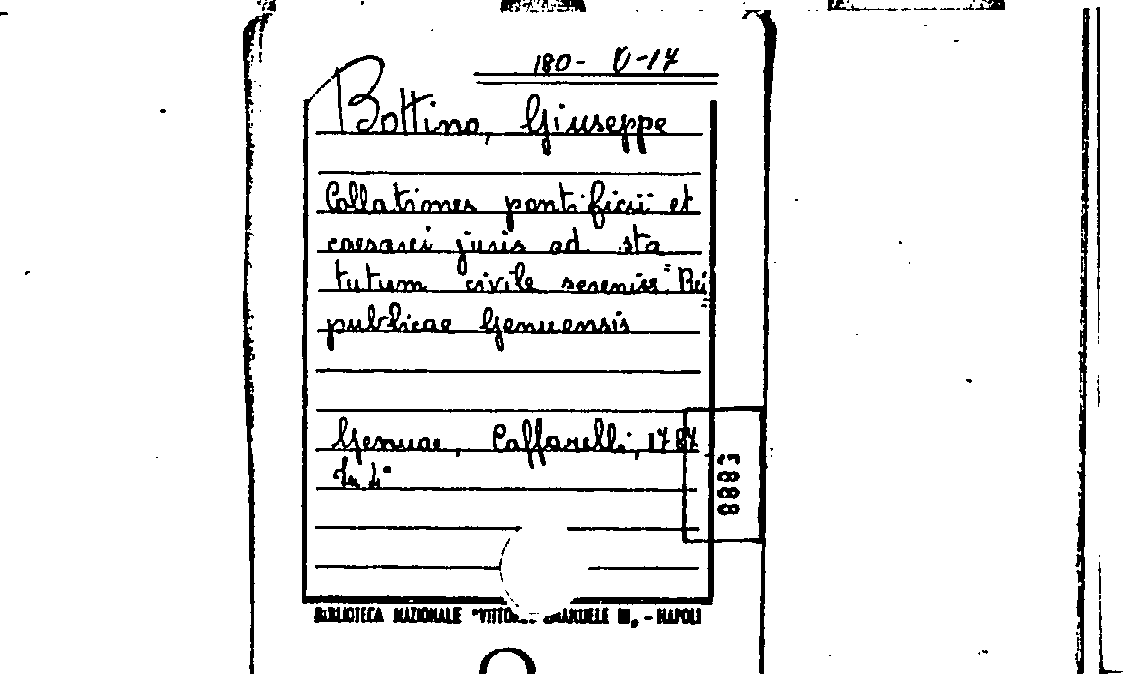 180- U-17
Bottino, Giuseppe
Collationes pontificii et
caesarei juris ad sta
tutum civile sereniss. Rei
publicae Genuensis
Genuae, Caffarelli, 1787
In 4°
8883
BIBLIOTECA NAZIONALE "VITTO EMANUELE III„ - NAPOLI